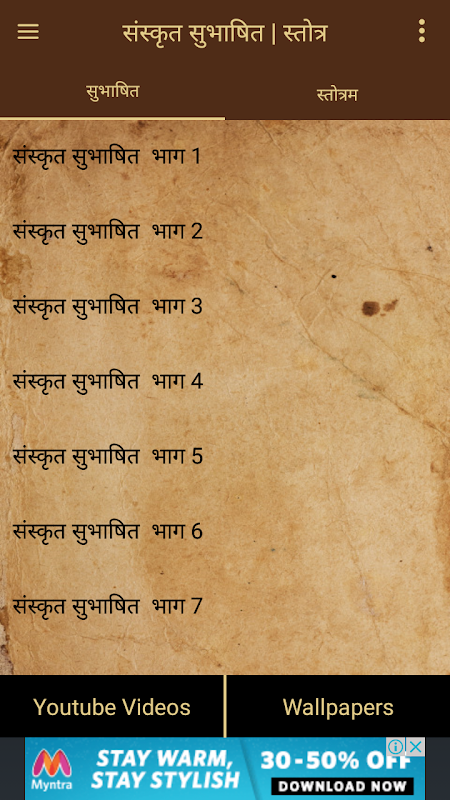 संस्कृत सुभाषित | स्तोत्र
सुभाषित
स्तोत्रम
संस्कृत सुभाषित भाग 1
संस्कृत सुभाषित भाग 2
संस्कृत सुभाषित भाग 3
संस्कृत सुभाषित भाग 4
संस्कृत सुभाषित भाग 5
संस्कृत सुभाषित भाग 6
संस्कृत सुभाषित भाग 7
Youtube Videos
Wallpapers
Myntra
STAY WARM,
STAY STYLISH
30-50% OFF
DOWNLOAD NOW